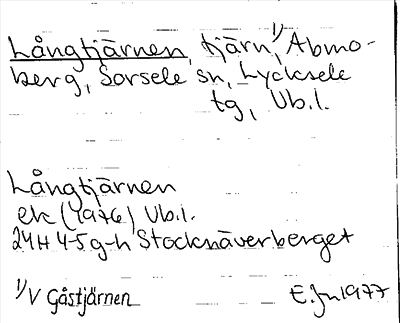 Långtjärnen, tjärn, 1/ Abmo-
berg, Sorsele sn, Lycksele
tg, Vb.l.
Långtjärnen
ek (1976) Vb.l.
24H 4-5 g-h Stocknäverberget
1/ V Gåstjärnen
1977